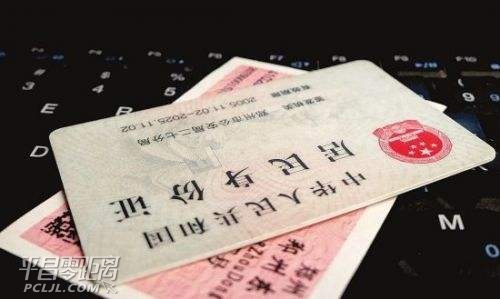 中华人民共和国
居民身份证
签发机关 郑州市公安局二七分局
有效期限 2005.11.02-2025.11.02
郑州
E
D
M
平昌零距离
PCLJL.COM